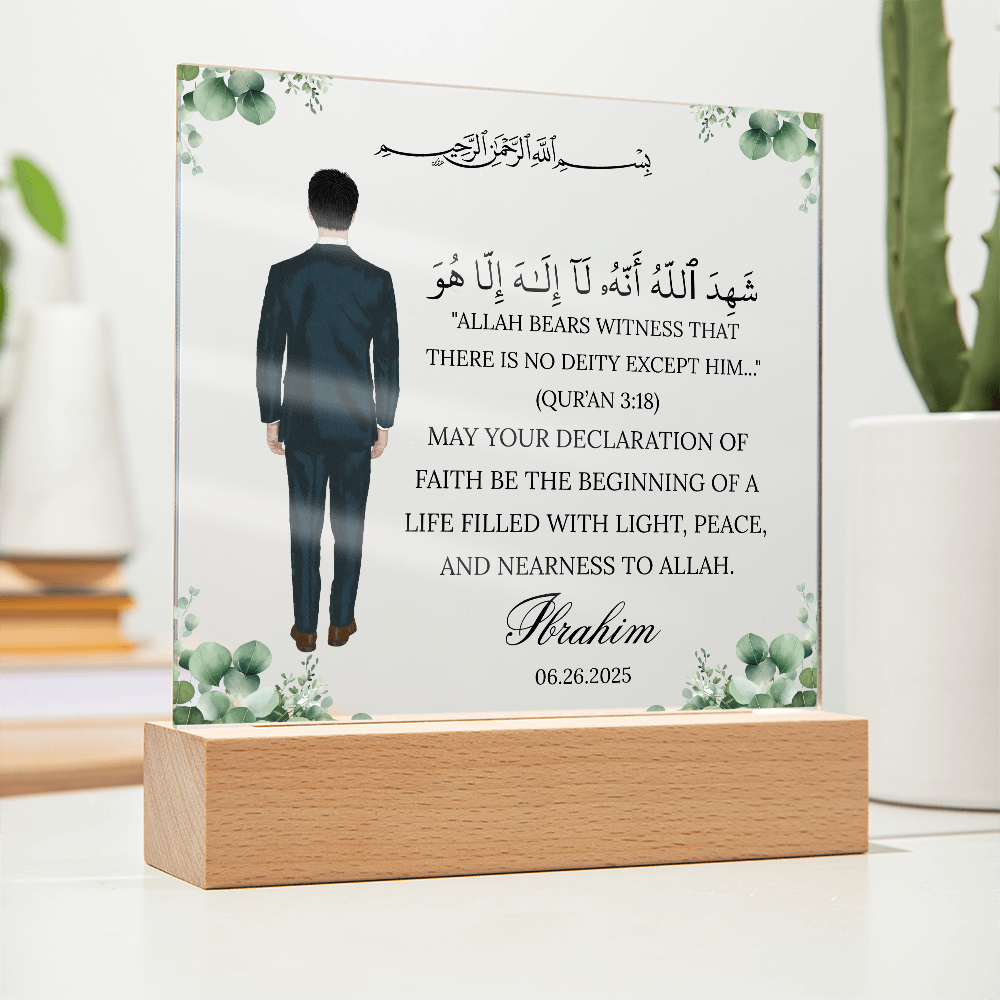 بِسْمِ ٱللَّهِ ٱلرَّحْمَٰنِ ٱلرَّحِيمِ
شَهِدَ ٱللَّهُ أَنَّهُۥ لَآ إِلَـٰهَ إِلَّا هُوَ
"ALLAH BEARS WITNESS THAT
THERE IS NO DEITY EXCEPT HIM..."
(QUR'AN 3:18)
MAY YOUR DECLARATION OF
FAITH BE THE BEGINNING OF A
LIFE FILLED WITH LIGHT, PEACE,
AND NEARNESS TO ALLAH.
Ibrahim
06.26.2025